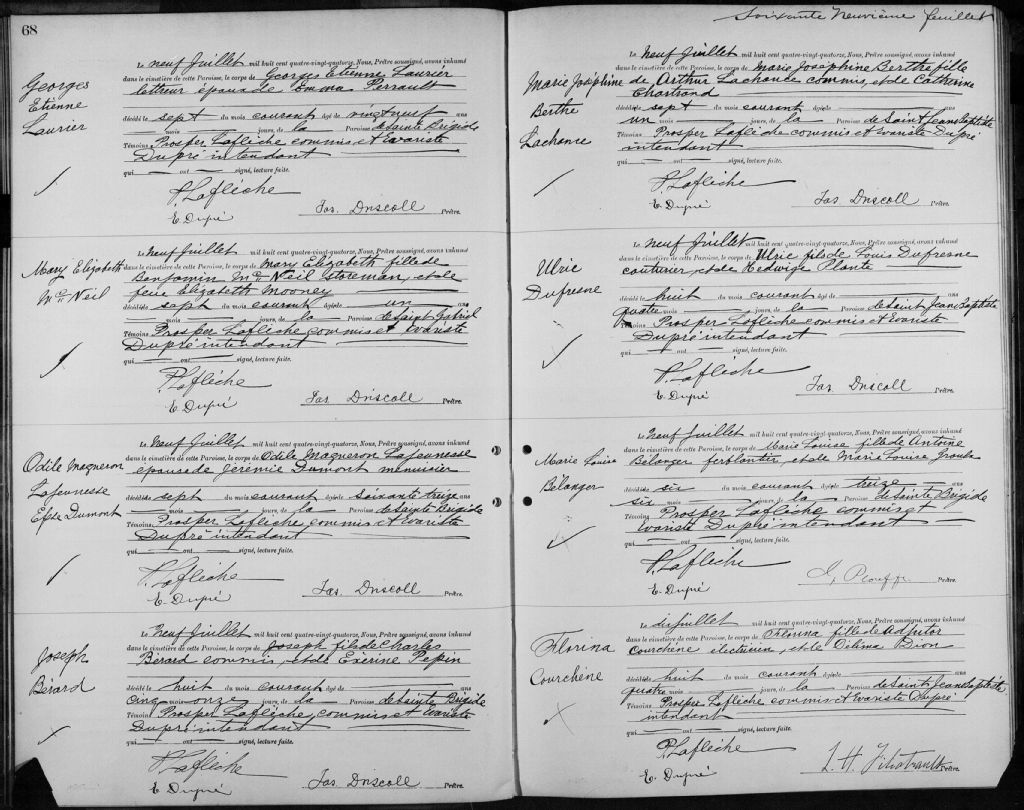 68
Georges
Etienne
Laurier
Le neuf Juillet mil huit cent quatre-vingt-quatorze, Nous, Prêtre soussigné, avons inhumé
dans le cimetière de cette Paroisse, le corps de Georges Etienne Laurier
époux de Emma Perrault
décédé le sept du mois courant âgé de vingt neuf ans
mois jours, de la Paroisse de Sainte Brigide
Témoins Prosper Laflèche commis et Evariste
Dupré intendant
qui — ont — signé, lecture faite.
P. Laflèche
E. Dupré
Jas. Driscoll Prêtre.
Mary Elizabeth
McNeil
Le Neuf Juillet mil huit cent quatre-vingt-quatorze, Nous, Prêtre soussigné, avons inhumé
dans le cimetière de cette Paroisse, le corps de Mary Elizabeth fille de
Benjamin McNeil storeman, et de
feue Elizabeth Mooney
décédée sept du mois courant âgée de un ans
mois jours, de la Paroisse de Saint Gabriel
Témoins Prosper Laflèche commis et Evariste
Dupré intendant
qui — ont — signé, lecture faite.
P. Laflèche
E. Dupré
Jas. Driscoll Prêtre.
Odile Magneron
Lafeunesse
Epse Dumont
Le Neuf Juillet mil huit cent quatre-vingt-quatorze, Nous, Prêtre soussigné, avons inhumé
dans le cimetière de cette Paroisse, le corps de Odile Magneron Lafeunesse
épouse de Jérémie Dumont menuisier
décédée sept du mois courant âgée de soixante treize ans
mois jours, de la Paroisse de Sainte Brigide
Témoins Prosper Laflèche commis et Evariste
Dupré intendant
qui — ont — signé, lecture faite.
P. Laflèche
E. Dupré
Jas. Driscoll Prêtre.
Joseph
Bérard
Le Neuf Juillet mil huit cent quatre-vingt-quatorze, Nous, Prêtre soussigné, avons inhumé
dans le cimetière de cette Paroisse, le corps de Joseph fils de Charles
Bérard commis, et de Exérine Pepin
décédé le huit du mois courant âgé de ans
cinq mois onze jours, de la Paroisse de Sainte Brigide
Témoins Prosper Laflèche, commis et Evariste
Dupré intendant
qui — ont — signé, lecture faite.
P. Laflèche
E. Dupré
Jas. Driscoll Prêtre.
Soixante Neuvième feuillet
Marie Joséphine
Berthe
Lachance
Le Neuf Juillet mil huit cent quatre-vingt-quatorze, Nous, Prêtre soussigné, avons inhumé
dans le cimetière de cette Paroisse, le corps de Marie Joséphine Berthe fille
de Arthur Lachance commis, et de Catherine
Chartrand
décédé le sept du mois courant âgé de ans
un mois jours, de la Paroisse de Saint Jean Baptiste
Témoins Prosper Laflèche commis et Evariste Dupré
intendant
qui — ont — signé, lecture faite.
P. Laflèche
E. Dupré
Jas. Driscoll Prêtre.
Ulric
Dufresne
Le neuf Juillet mil huit cent quatre-vingt-quatorze, Nous, Prêtre soussigné, avons inhumé
dans le cimetière de cette Paroisse, le corps de Ulric fils de Louis Dufresne
couturier, et de Hedwige Plante
décédé le huit du mois courant âgé de ans
quatre mois jours, de la Paroisse de Saint Jean Baptiste
Témoins Prosper Laflèche commis et Evariste
Dupré intendant
qui — ont — signé, lecture faite.
P. Laflèche
E. Dupré
Jas. Driscoll Prêtre.
Marie Louise
Bélanger
Le Neuf Juillet mil huit cent quatre-vingt-quatorze, Nous, Prêtre soussigné, avons inhumé
dans le cimetière de cette Paroisse, le corps de Marie Louise fille de Antoine
Bélanger ferblantier, et de Marie Louise
décédée six du mois courant âgée de treize ans
six mois jours, de la Paroisse de Sainte Brigide
Témoins Prosper Laflèche commis et
Evariste Dupré intendant
qui — ont — signé, lecture faite.
P. Laflèche
E. Dupré
Plouffe Prêtre.
Florina
Courchene
Le dix Juillet mil huit cent quatre-vingt-quatorze, Nous, Prêtre soussigné, avons inhumé
dans le cimetière de cette Paroisse, le corps de Florina fille de
Courchene électricien, et de Délima Dion
décédé le huit du mois courant âgé de ans
quatre mois jours, de la Paroisse de Saint Jean Baptiste
Témoins Prosper Laflèche commis et Evariste Dupré
intendant
qui — ont — signé, lecture faite.
P. Laflèche
E. Dupré
L. H. Prêtre.